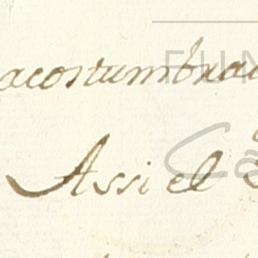 acostumbra
Assi el